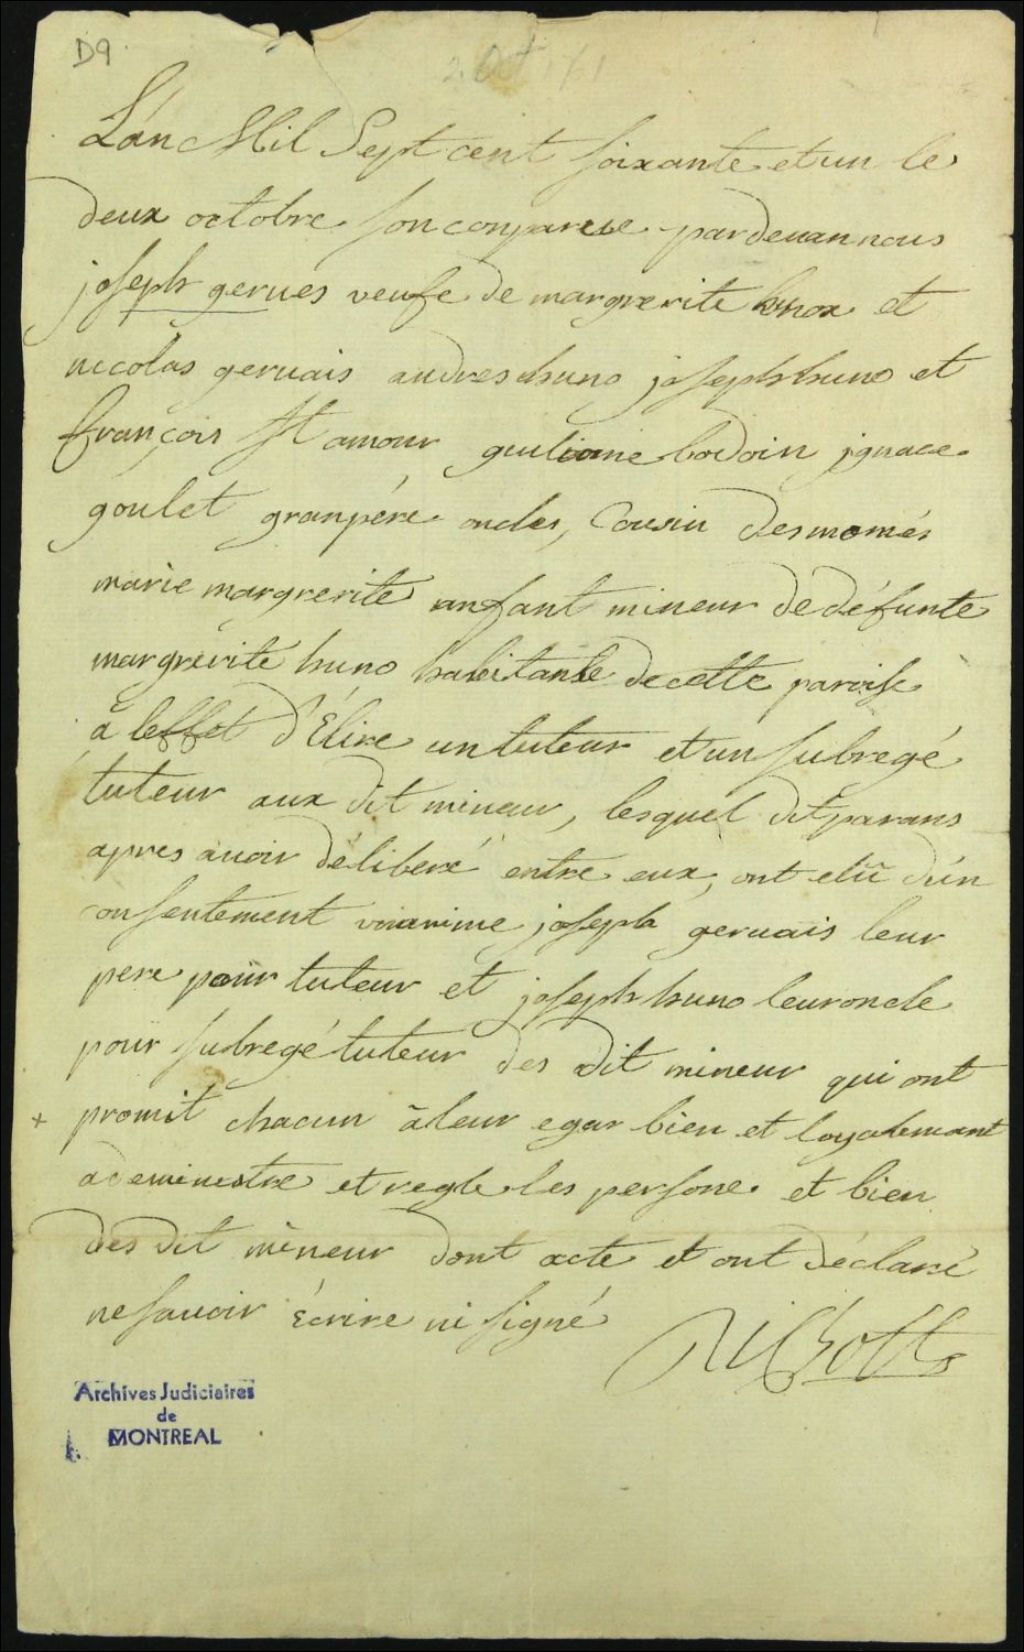 D9.
2. Oct 1761
L'an Mil Sept cent soixante et un le
deux octobre son conparue pardevan nous
joseph gerues veufe de margrerite hunox et
nicolas geruais andres huno joseph huno et
françois St amour guiliaume bodoin jgnace
goulet granpére oncles, Cousin des
marie margrerite anfant mineur de défunte
margrerite huno habitante de cette paroise
à leffet d'Élire un tuteur et un subregé
tuteur aux dit mineur, lesquel dit parans
apres auoir déliberé entre eux, ont elü d'un
consentement vnanime joseph geruais leur
pere pour tuteur et joseph huno leur oncle
pour subregé tuteur des dit mineur qui ont
+ promit chacun à leur egar bien et loyalemant
ademinestre et regle les persone et bien
des dit mineur dont acte et ont déclaré
ne sauoir écrire ni signé
Archives Judiciaires
de
MONTREAL